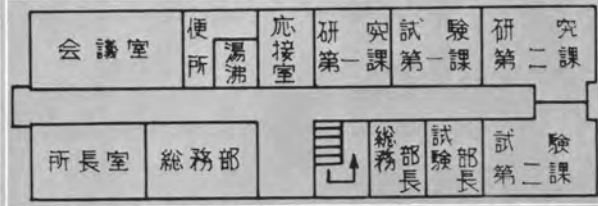 会議室
便所
湯沸
応接室
研究第一課
試験第一課
研究第二課
所長室
総務部
総務部長
試験部長
試験第二課